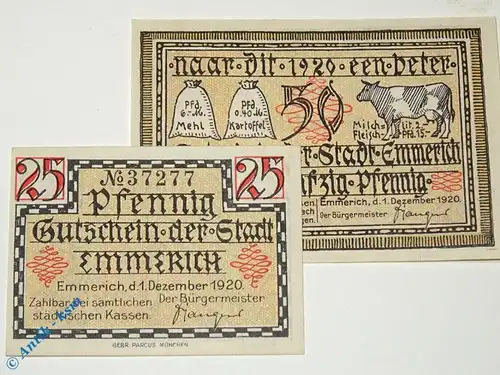 naar dit 1920 een beter
Pfd. 6.-M. Mehl
Pfd. 0.40 M. Kartoffel
50
Milch Lit. 2.-
Fleisch Pfd. 15.-
Stadt Emmerich
fzig Pfennig
Emmerich, d. 1. Dezember 1920.
Der Bürgermeister
25 25
№ 37277
Pfennig
Gutschein der Stadt
EMMERICH
Emmerich, d. 1. Dezember 1920.
Zahlbar bei sämtlichen
städtischen Kassen.
Der Bürgermeister
GEBR. PARCUS MÜNCHEN